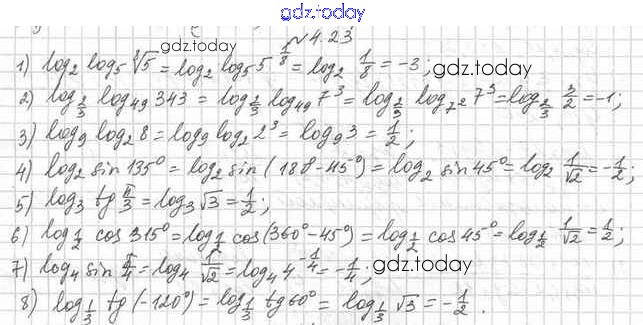 gdz.today
№4.23
gdz.today
1) log₂ log₅ ⁸√5 = log₂ log₅ 5^(1/8) = log₂ 1/8 = -3;
gdz.today
2) log_(2/3) log₄₉ 343 = log_(2/3) log₄₉ 7³ = log_(2/3) log_(7²) 7³ = log_(2/3) 3/2 = -1;
3) log₉ log₂ 8 = log₉ log₂ 2³ = log₉ 3 = 1/2;
4) log₂ sin 135° = log₂ sin (180°-45°) = log₂ sin 45° = log₂ 1/√2 = -1/2;
5) log₃ tg π/3 = log₃ √3 = 1/2;
gdz.today
6) log_(1/2) cos 315° = log_(1/2) cos (360°-45°) = log_(1/2) cos 45° = log_(1/2) 1/√2 = 1/2;
7) log₄ sin π/4 = log₄ 1/√2 = log₄ 4^(-1/4) = -1/4;
gdz.today
8) log_(1/3) tg (-120°) = log_(1/3) tg 60° = log_(1/3) √3 = -1/2.